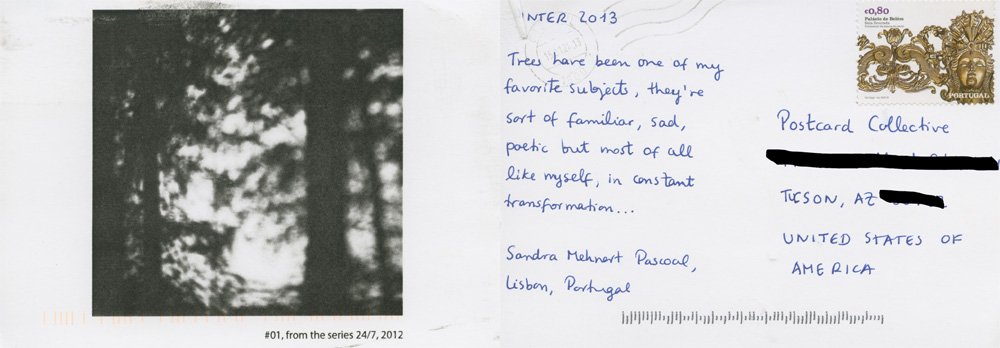 #01, from the series 24/7, 2012
INTER 2013
Trees have been one of my
favorite subjects, they're
sort of familiar, sad,
poetic but most of all
like myself, in constant
transformation...
Sandra Mehnert Pascoal,
Lisbon, Portugal
€0,80
Palácio de Belém
PORTUGAL
Postcard Collective
TUCSON, AZ
UNITED STATES OF
AMERICA